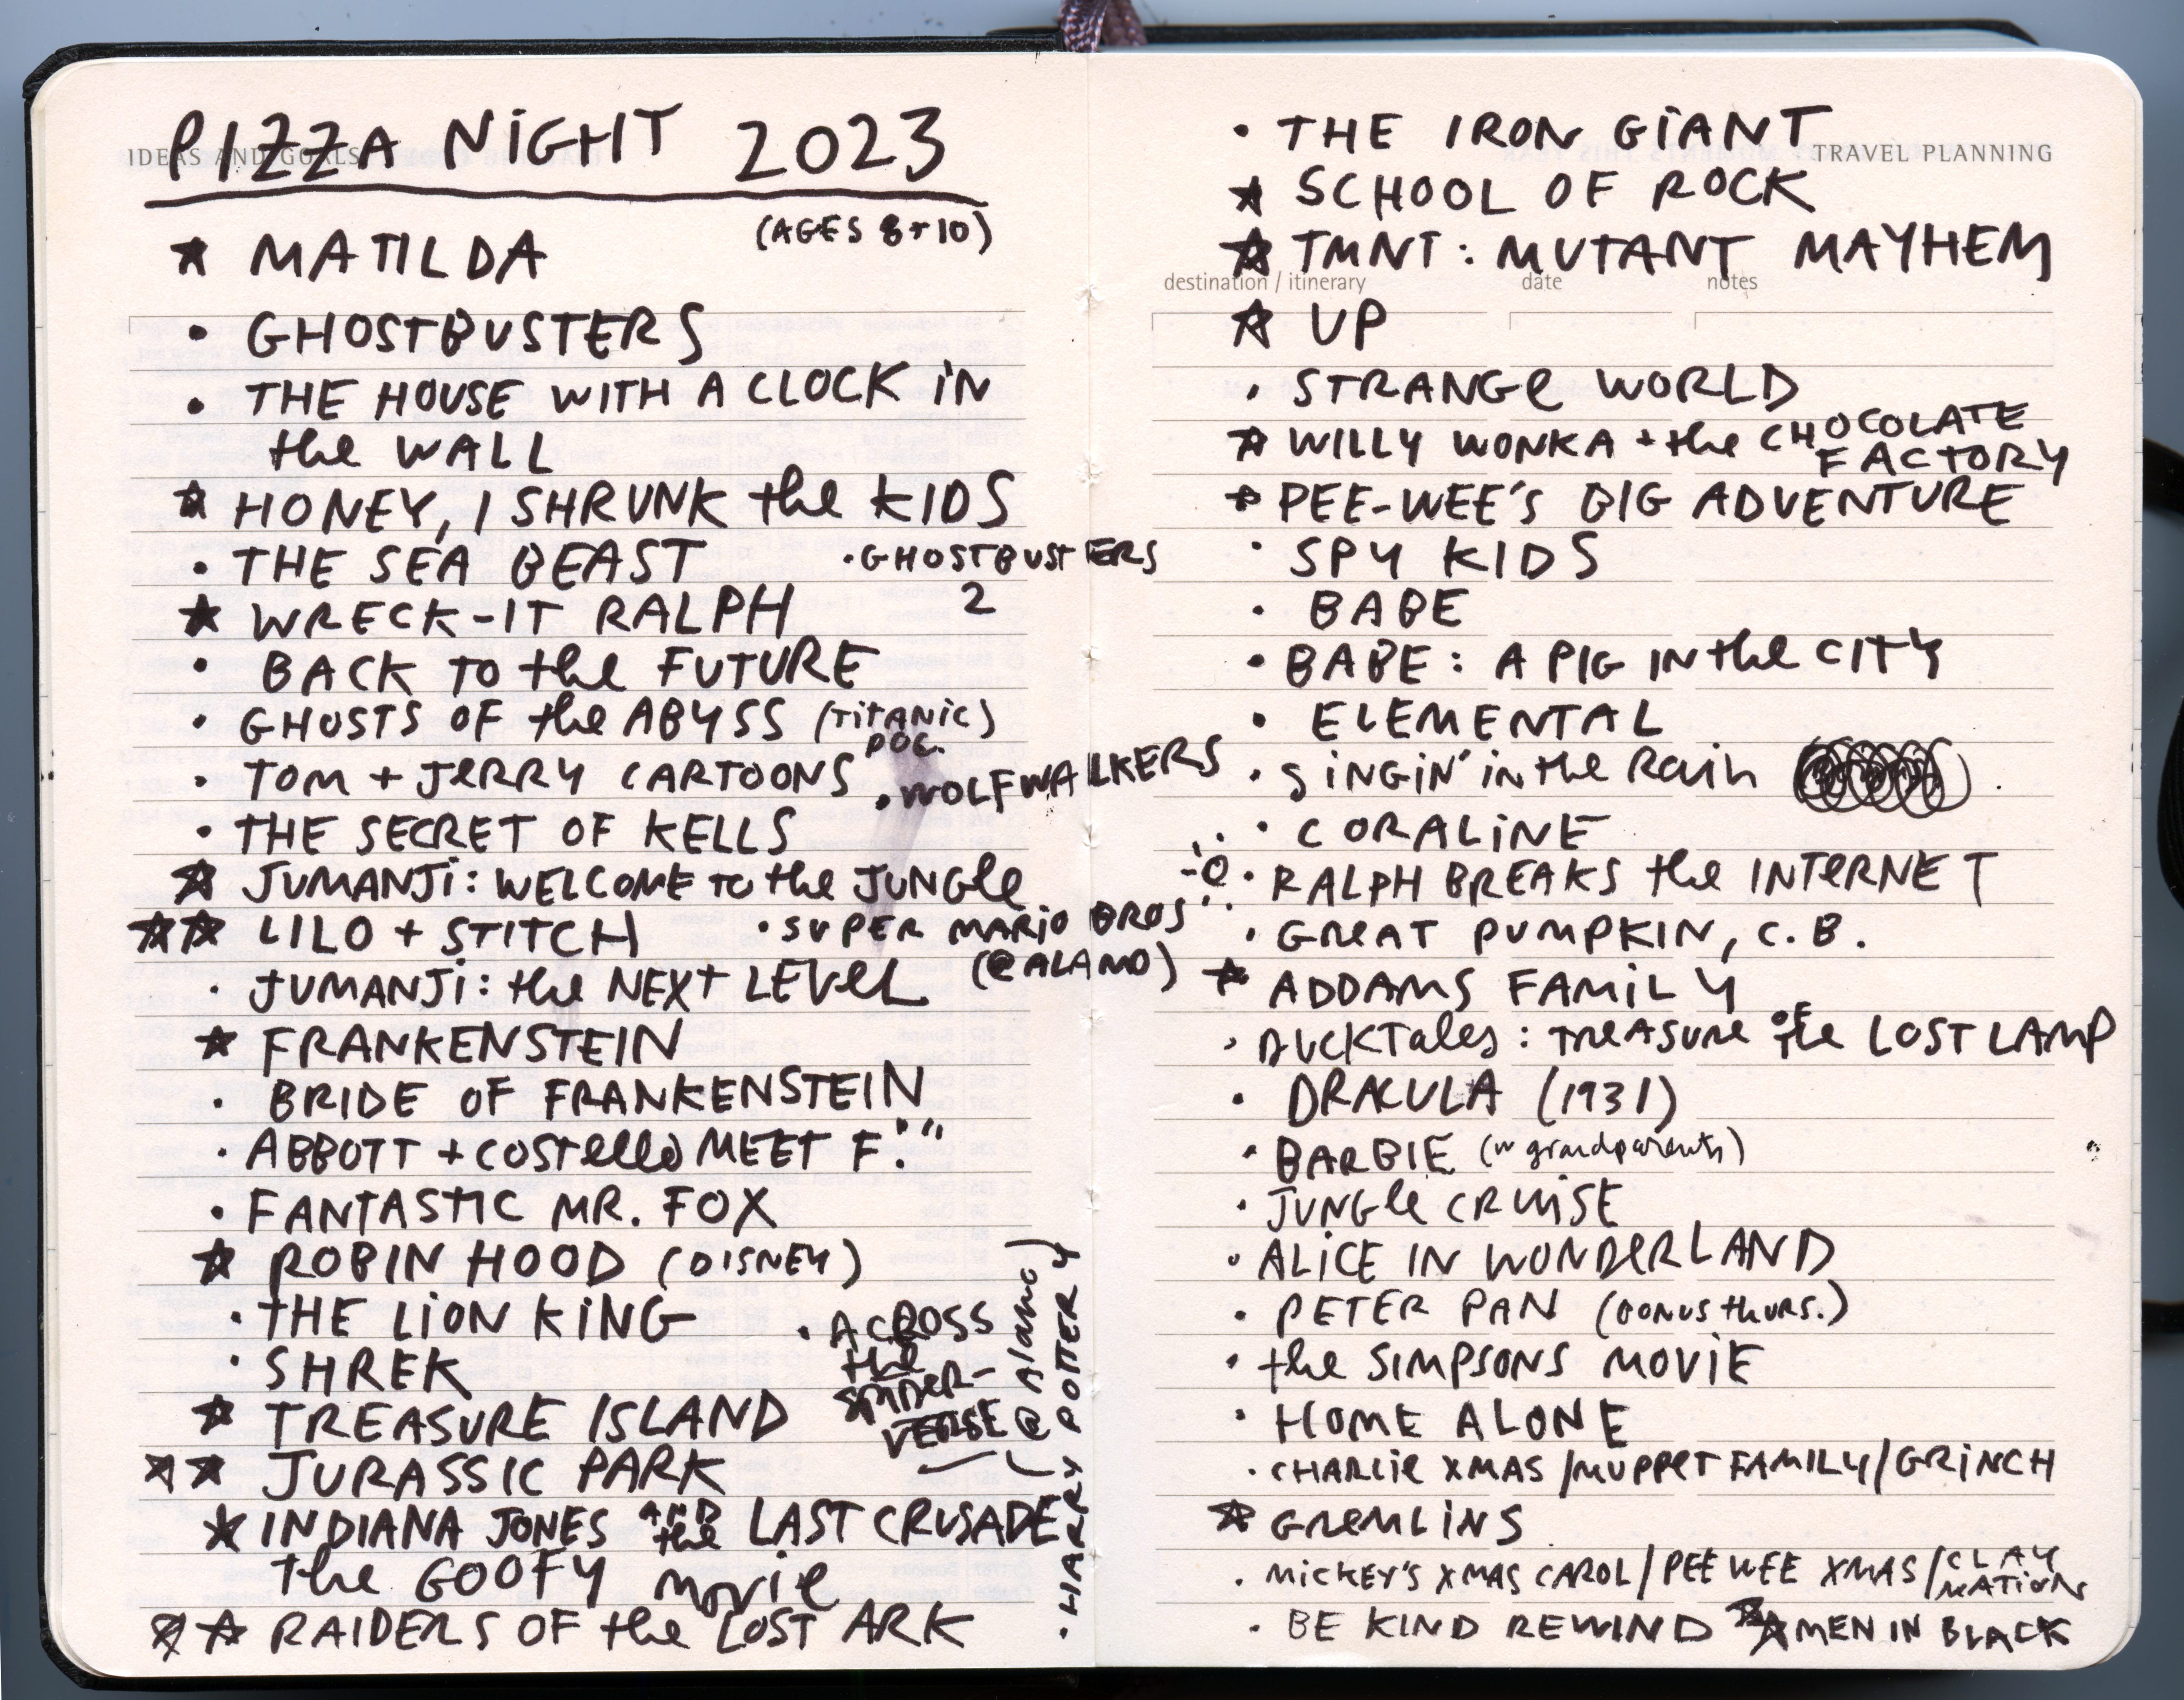 IDEAS AND GOALS
PIZZA NIGHT 2023
(AGES 8+10)
★ MATILDA
• GHOSTBUSTERS
• THE HOUSE WITH A CLOCK iN
the WALL
★ HONEY, I SHRUNK the KIDS
• THE SEA BEAST
• GHOSTBUSTERS
2
★ WRECK-IT RALPH
• BACK TO the FUTURE
• GHOSTS OF the ABYSS (TiTANiC)
DOC.
• TOM + JeRRY CARTOONS
• WOLFWALKERS
• THE SECRET OF KELLS
★ JUMANJi: WELCOME TO the JUNGle
★★ LILO + STITCH
• SUPER MARiO BROS
(@ALAMO)
• JUMANJi: the NEXT LEVeL
★ FRANKENSTEIN
• BRIDE OF FRANKENSTEIN
• ABBOTT + COSTello MEET F. " "
• FANTASTIC MR. FOX
★ ROBIN HOOD (DISNEY)
• THE LiON KING
• SHREK
• ACROSS
the
SPIDER-
VERSE
(@ Alamo)
★ TREASURE ISLAND
★★ JURASSIC PARK
★ INDIANA JONES AND the LAST CRUSADE
the GOOFY movie
★★ RAIDERS OF the LOST ARK
• HARRY POTTER 4
TRAVEL PLANNING
• THE IRON GiANT
★ SCHOOL OF ROCK
★ TMNT: MUTANT MAYHEM
destination / itinerary date notes
★ UP
• STRANGe WORLD
★ WILLY WONKA + the CHOCOLATE
FACTORY
★ PEE-WEE'S BIG ADVENTURE
• SPY KIDS
• BABE
• BABE: A PIG IN the CITY
• ELEMENTAL
• SiNGiN' in the Rain
• CORALiNE
• RALPH BREAKS the INTeRNET
• GReAT PUMPKIN, C.B.
★ ADDAMS FAMiLY
• DUCKTales: TReASURe OF the LOST LAMP
• DRACULA (1931)
• BARBIE (w grandparents)
• JUNGle CRUiSE
• ALiCE IN WONDeRLAND
• PETER PAN (BONUS thURS.)
• the SIMPSONS MOViE
• HOME ALONE
• CHARLie XMAS / MUPPeT FAMILY / GRiNCH
★ GReMLiNS
• MiCKEY'S XMAS CAROL / PEE WEE XMAS / CLAY
MATiON
• BE KIND REWIND ★★ MEN IN BLACK